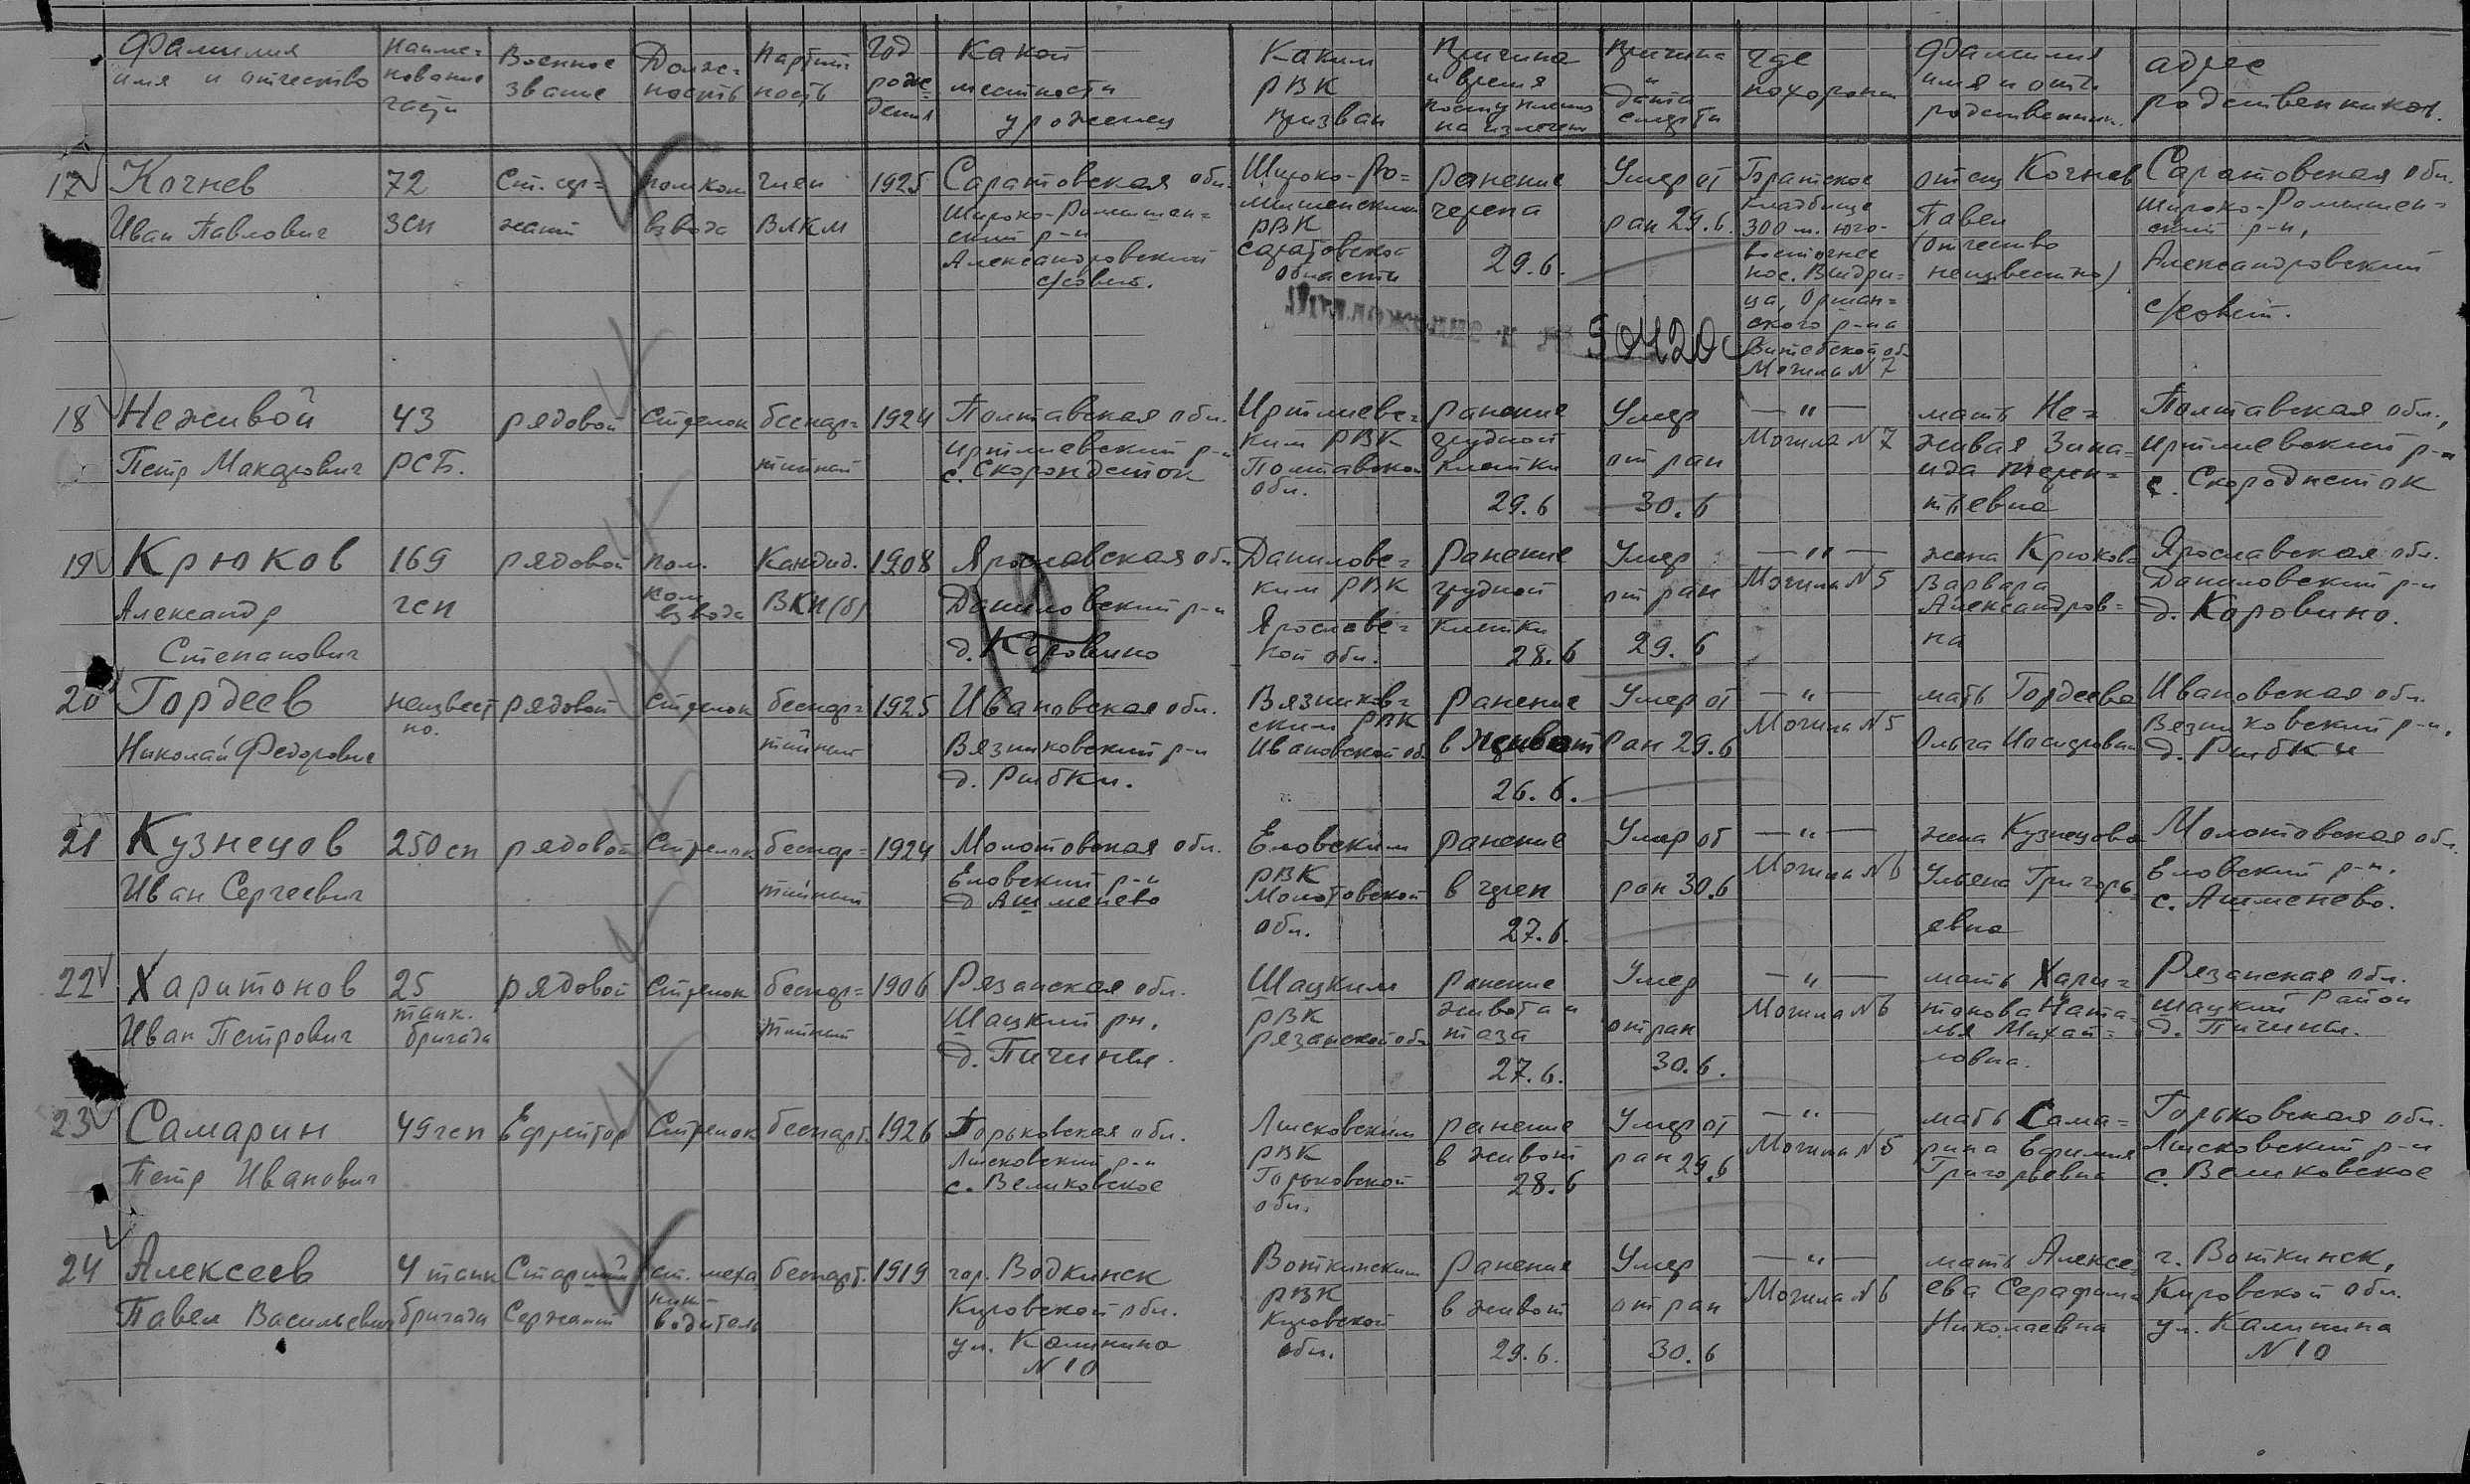 Фамилия имя и отчество
Наиме=нование части
Военное звание
Долж=ность
Партий ность
Год рождения
Какой местности уроженец
Каким РВК призван
Причина и время поступления на излечен
Причина и дата смерти
где похоронен
Фамилия имя и отч родственник.
адрес родственников.
17 Кочнев 72 Ст. сер= помком член 1925 Саратовская обл. Широко-Ро= Ранение Умер от Братское отец Кочнев Саратовская обл.
Иван Павлович зсп жант взвода ВЛКМ Широко-Ромишен= мишенским черепа ран 29.6. кладбище Павел Широко-Ромишен=
ский р-н РВК 300 м. юго- (отчество ский р-н,
Александровский Саратовской 29.6. восточнее неизвестно) Александровский
с/совет. области пос. Выдри=
ца, Оршан= с/совет.
ского р-на
30420с Витебской об.
Могила N 7
18 Неживой 43 рядовой Стрелок беспар= 1924 Полтавская обл. Иртлиевс= ранение Умер —"— мать Не= Полтавская обл.,
Петр Макарович РСБ. тийный Иртлиевский р-н ким РВК грудной от ран Могила N 7 живая Зина= Иртлиевский р-н
с. Скородисток Полтавской клетки ида Терен= с. Скородисток
обл. 29.6 30.6 тьевна
19 Крюков 169 рядовой пом. Кандид. 1908 Ярославская обл Даниловс= Ранение Умер —"— жена Крюкова Ярославская обл.
Александр гсп ком взвода ВКП(б) Даниловский р-н ким РВК грудной от ран Могила N 5 Варвара Даниловский р-н
Степанович д. Коровино Ярославс= клетки 29.6 Александров= д. Коровино.
кой обл. 28.6 на
20 Гордеев неизвест рядовой Стрелок беспар= 1925 Ивановская обл. Вязников= Ранение Умер от —"— мать Гордеева Ивановская обл.
но. ским РВК Могила N 5
Николай Федорович тийный Вязниковский р-н Ивановской об. в живот Ран 29.6 Ольга Вязниковский р-н,
д. Рыбки. 26.6. д. Рыбки
21 Кузнецов 250 сп рядовой Стрелок беспар= 1924 Молотовская обл. Еловским ранение Умер от —"— жена Кузнецова Молотовская обл.
Иван Сергеевич тийный Еловский р-н РВК в череп ран 30.6 Могила N 6 Ульяна Григорь Еловский р-н.
д Ашменево Молотовской с. Ашменево.
обл. 27.6. евна
22 Харитонов 25 рядовой Стрелок беспар= 1906 Рязанская обл. Шацким ранение Умер —"— мать Хари= Рязанская обл.
Иван Петрович танк. бригада тийный Шацкий рн. РВК живота и от ран Могила N 6 тонова Ната= Шацкий Район
д. Пичины. рязанской обл таза лья Михай= д. Пичины.
27.6. 30.6. ловна.
23 Самарин 49 гсп Ефрейтор Стрелок беспарт. 1926 Горьковская обл. Лысковским ранение Умер от —"— мать Сама= Горьковская обл.
Петр Иванович Лысковский р-н РВК в живот ран 29.6 Могила N 5 рина Ефимия Лысковский р-н
с. Великовское Горьковской 28.6 Григорьевна с. Великовское
обл.
24 Алексеев 4 танк Старший ст. меха беспарт. 1919 гор. Водкинск Воткинским Ранение Умер —"— мать Алексе= г. Воткинск,
Павел Васильевич бригада Сержант ник водитель Кировской обл. РВК в живот от ран Могила N 6 ева Серафима Кировской обл.
ул. Калинина Кировской Николаевна ул. Калинина
N 10 обл. 29.6. 30.6 N 10